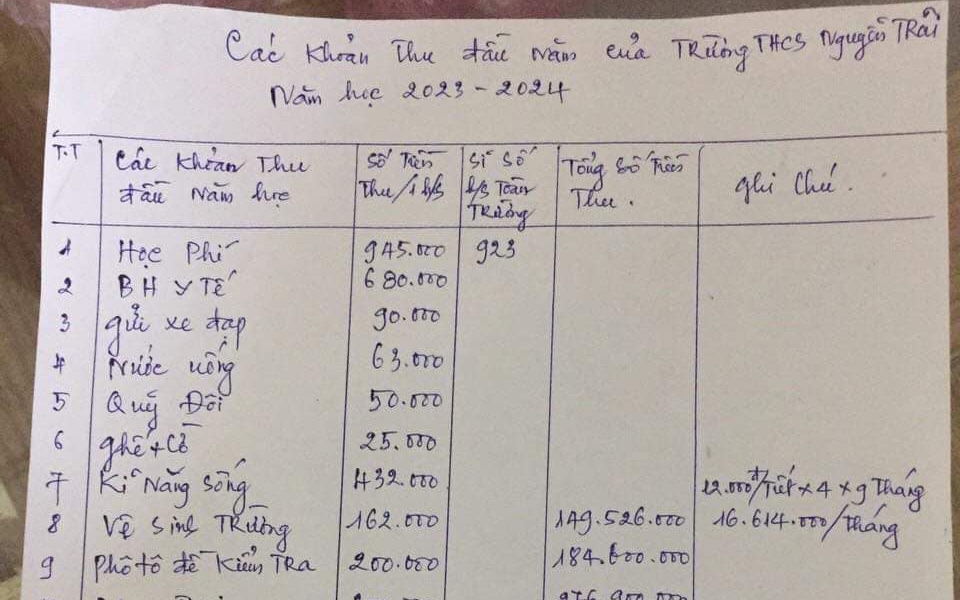 Các Khoản Thu đầu năm của Trường THCS Nguyễn Trãi
Năm học 2023 - 2024
T.T Các Khoản Thu đầu Năm học Số Tiền Thu/1 h/s Sĩ Số h/s Toàn Trường Tổng Số Tiền Thu. ghi chú.
1 Học Phí 945.000 923
2 BH y Tế 680.000
3 gửi xe đạp 90.000
4 Nước uống 63.000
5 Quỹ Đội 50.000
6 ghế + Cờ 25.000
7 Kĩ Năng Sống 432.000 12.000đ/Tiết x 4 x 9 Tháng
8 Vệ Sinh Trường 162.000 149.526.000 16.614.000/Tháng
9 Phô tô đề Kiểm Tra 200.000 184.600.000